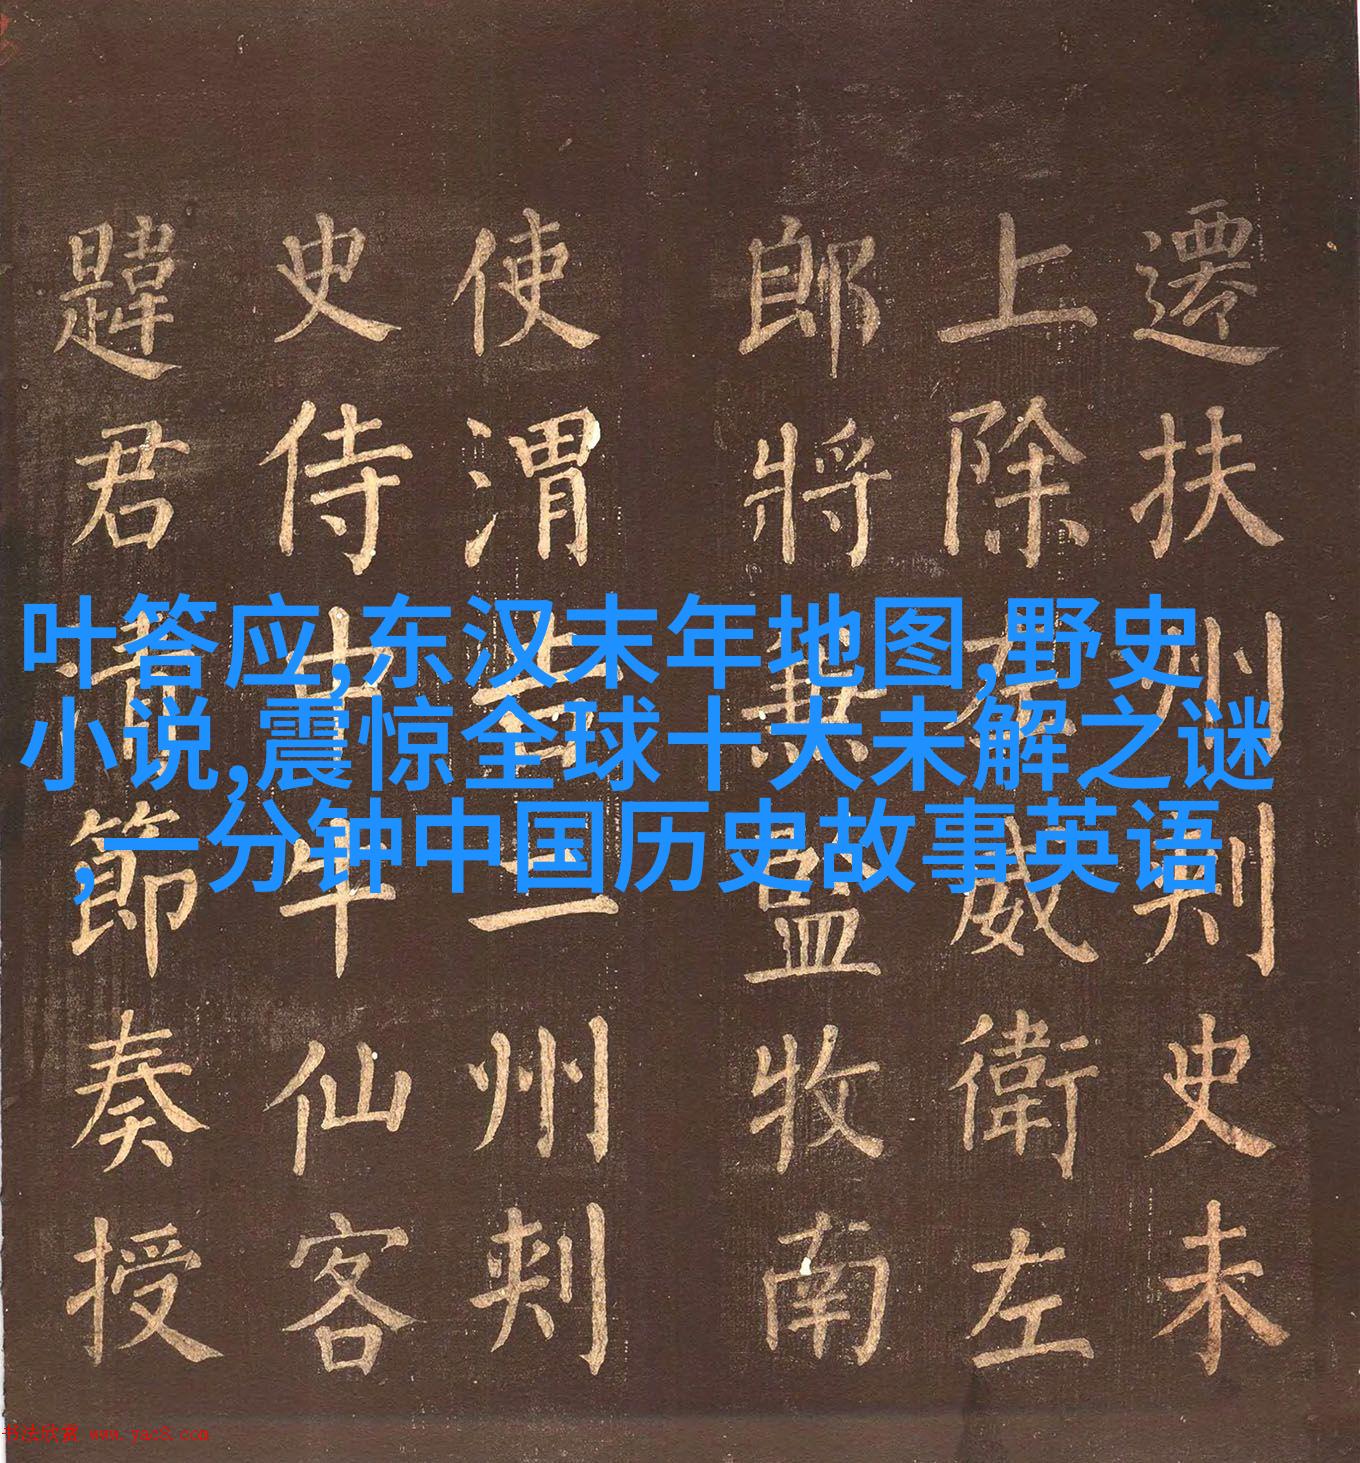 遷扶州刺史未
上除左威衛左
郎將兼監牧南
使渭吉二州刺
史侍中牛仙客
韙君清節奏授
叶答应,东汉末年地图,野史
小说,震惊全球十大未解之谜
,一分钟中国历史故事英语
书法欣赏 www.yac8.com